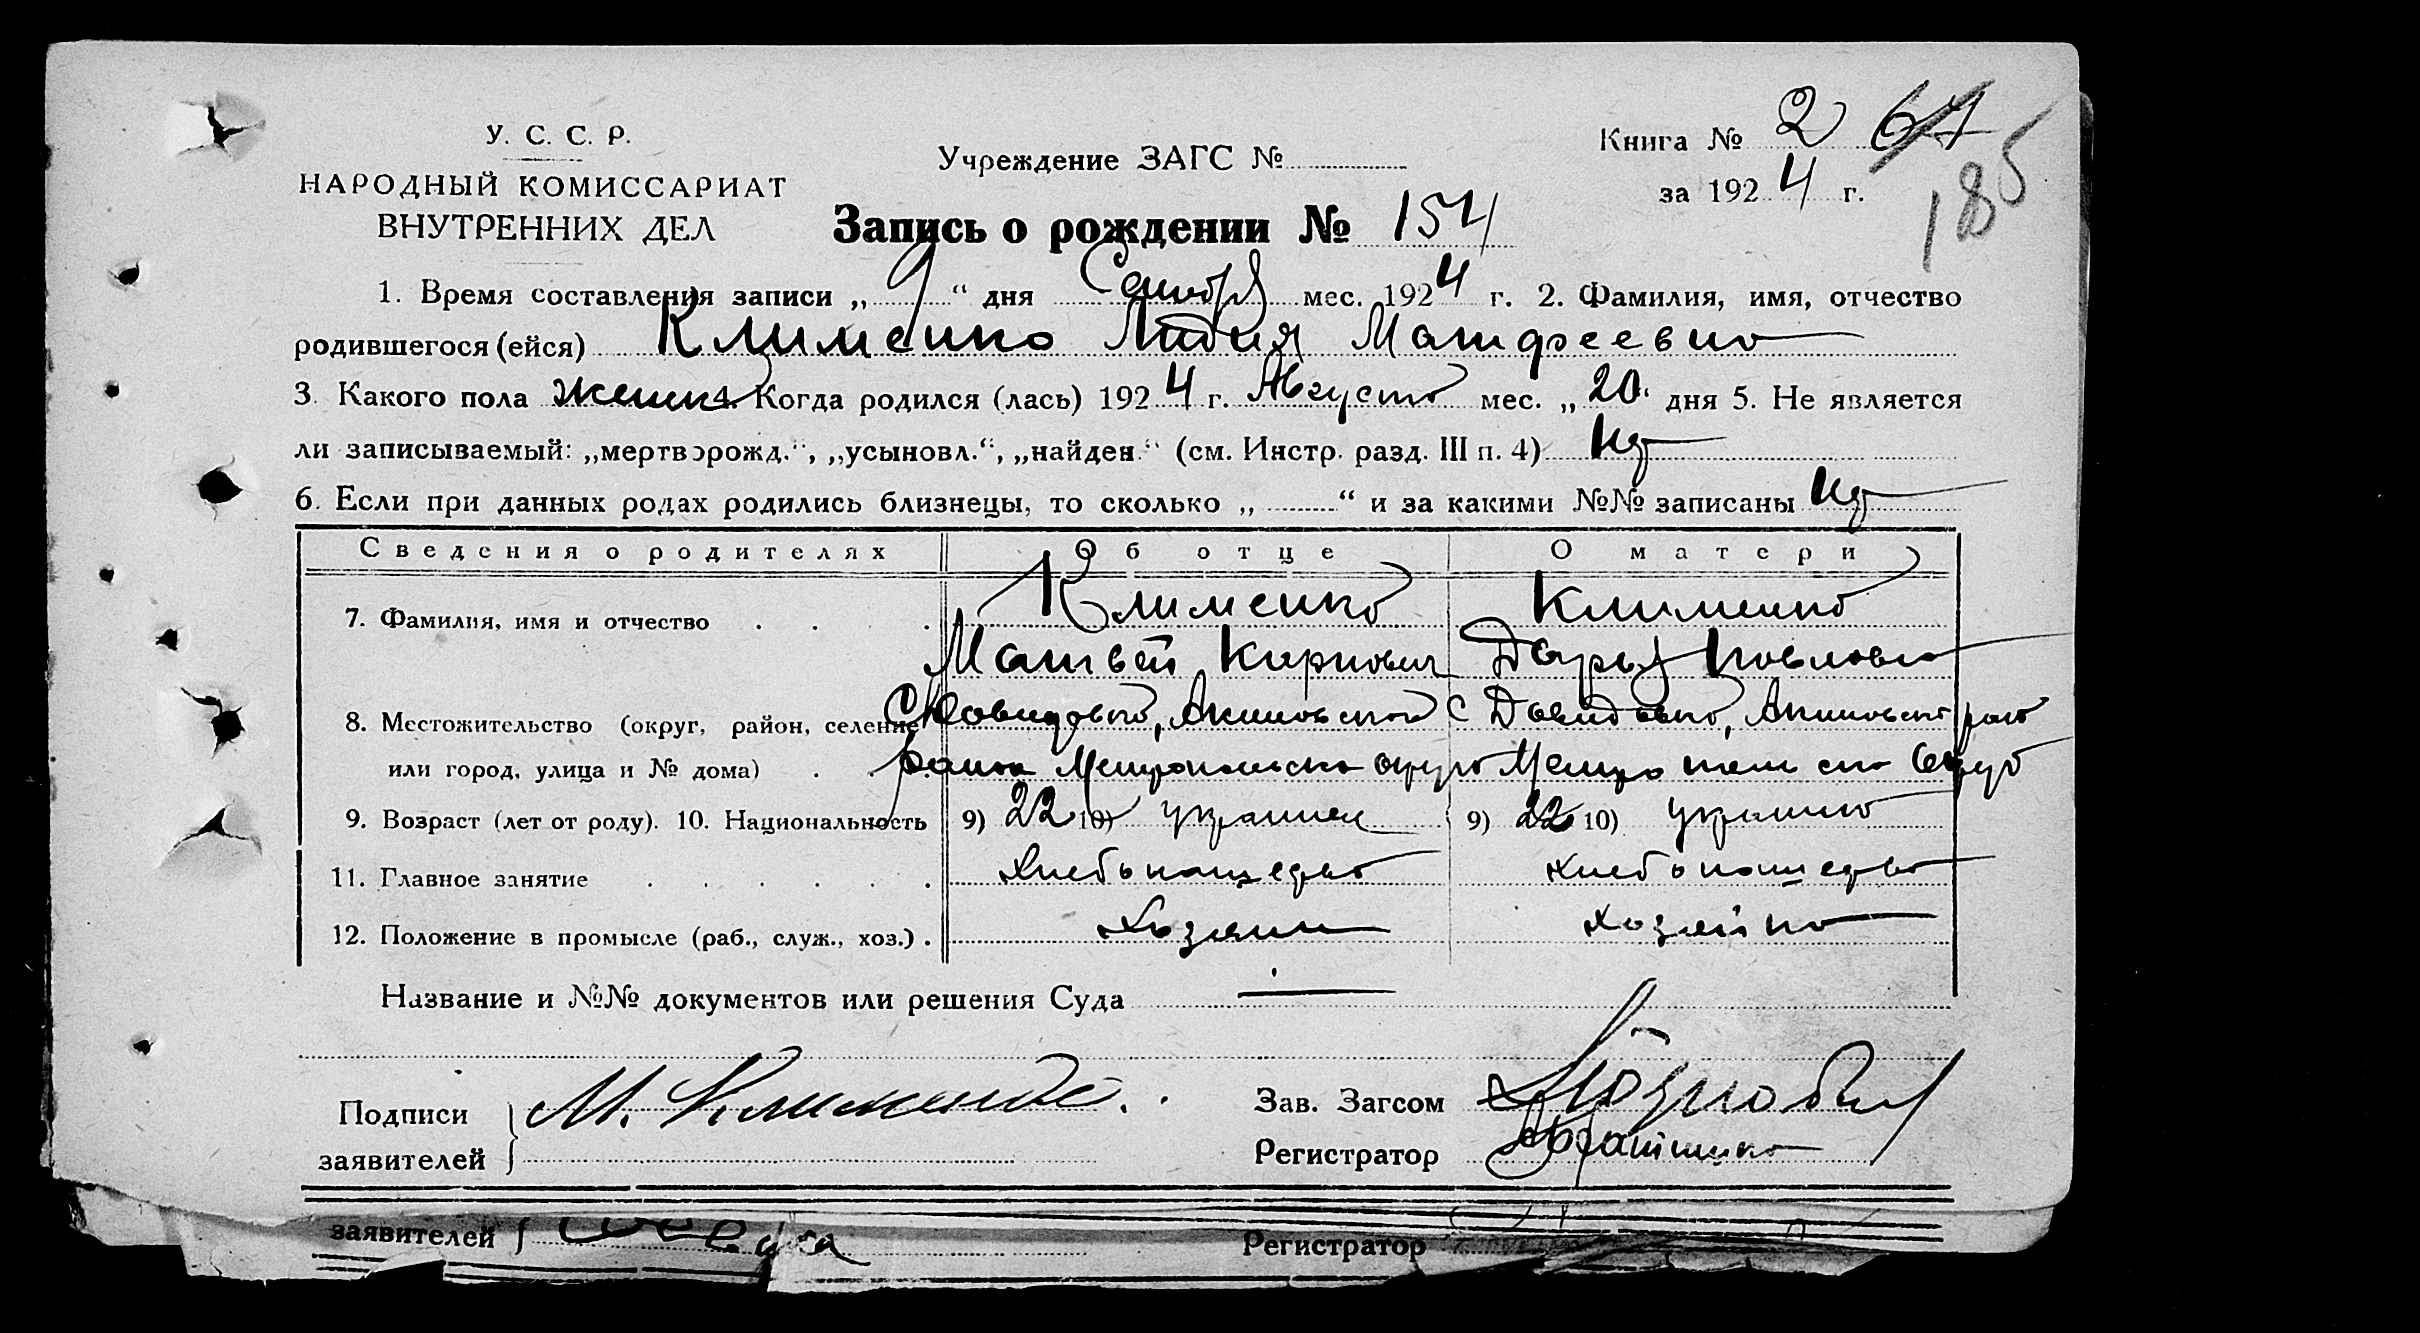 У. С. С. Р.
НАРОДНЫЙ КОМИССАРИАТ
ВНУТРЕННИХ ДЕЛ
Учреждение ЗАГС №
Книга № 2 67
за 1924 г.
185
Запись о рождении № 154
1. Время составления записи „9“ дня Сентобря мес. 1924 г. 2. Фамилия, имя, отчество
родившегося (ейся) Клименко Лидия Матфеевно
3. Какого пола женск 4. Когда родился (лась) 1924 г. Августо мес. „20“ дня 5. Не является
ли записываемый: „мертворожд.“, „усыновл.“, „найден.“ (см. Инстр. разд. III п. 4)
6. Если при данных родах родились близнецы, то сколько „ “ и за какими №№ записаны
Сведения о родителях Об отце О матери
7. Фамилия, имя и отчество . . . Клименко Клименко
Матвей Карпович Дарья Повловно
8. Местожительство (округ, район, селение С Довидовко, Акимовской С Довидовко, Акимовско раио
или город, улица и № дома) . . . раиона Мелитопольско округо Мелитопольско Округо
9. Возраст (лет от роду). 10. Национальность 9) 22 10) украинец 9) 22 10) украинко
11. Главное занятие . . . . . . Хлебопошедво Хлебопошедво
12. Положение в промысле (раб., служ., хоз.) . Хозяин Хозяйко
Название и №№ документов или решения Суда —
Подписи
заявителей
М. Клименко.
Зав. Загсом
Регистратор
заявителей
Регистратор